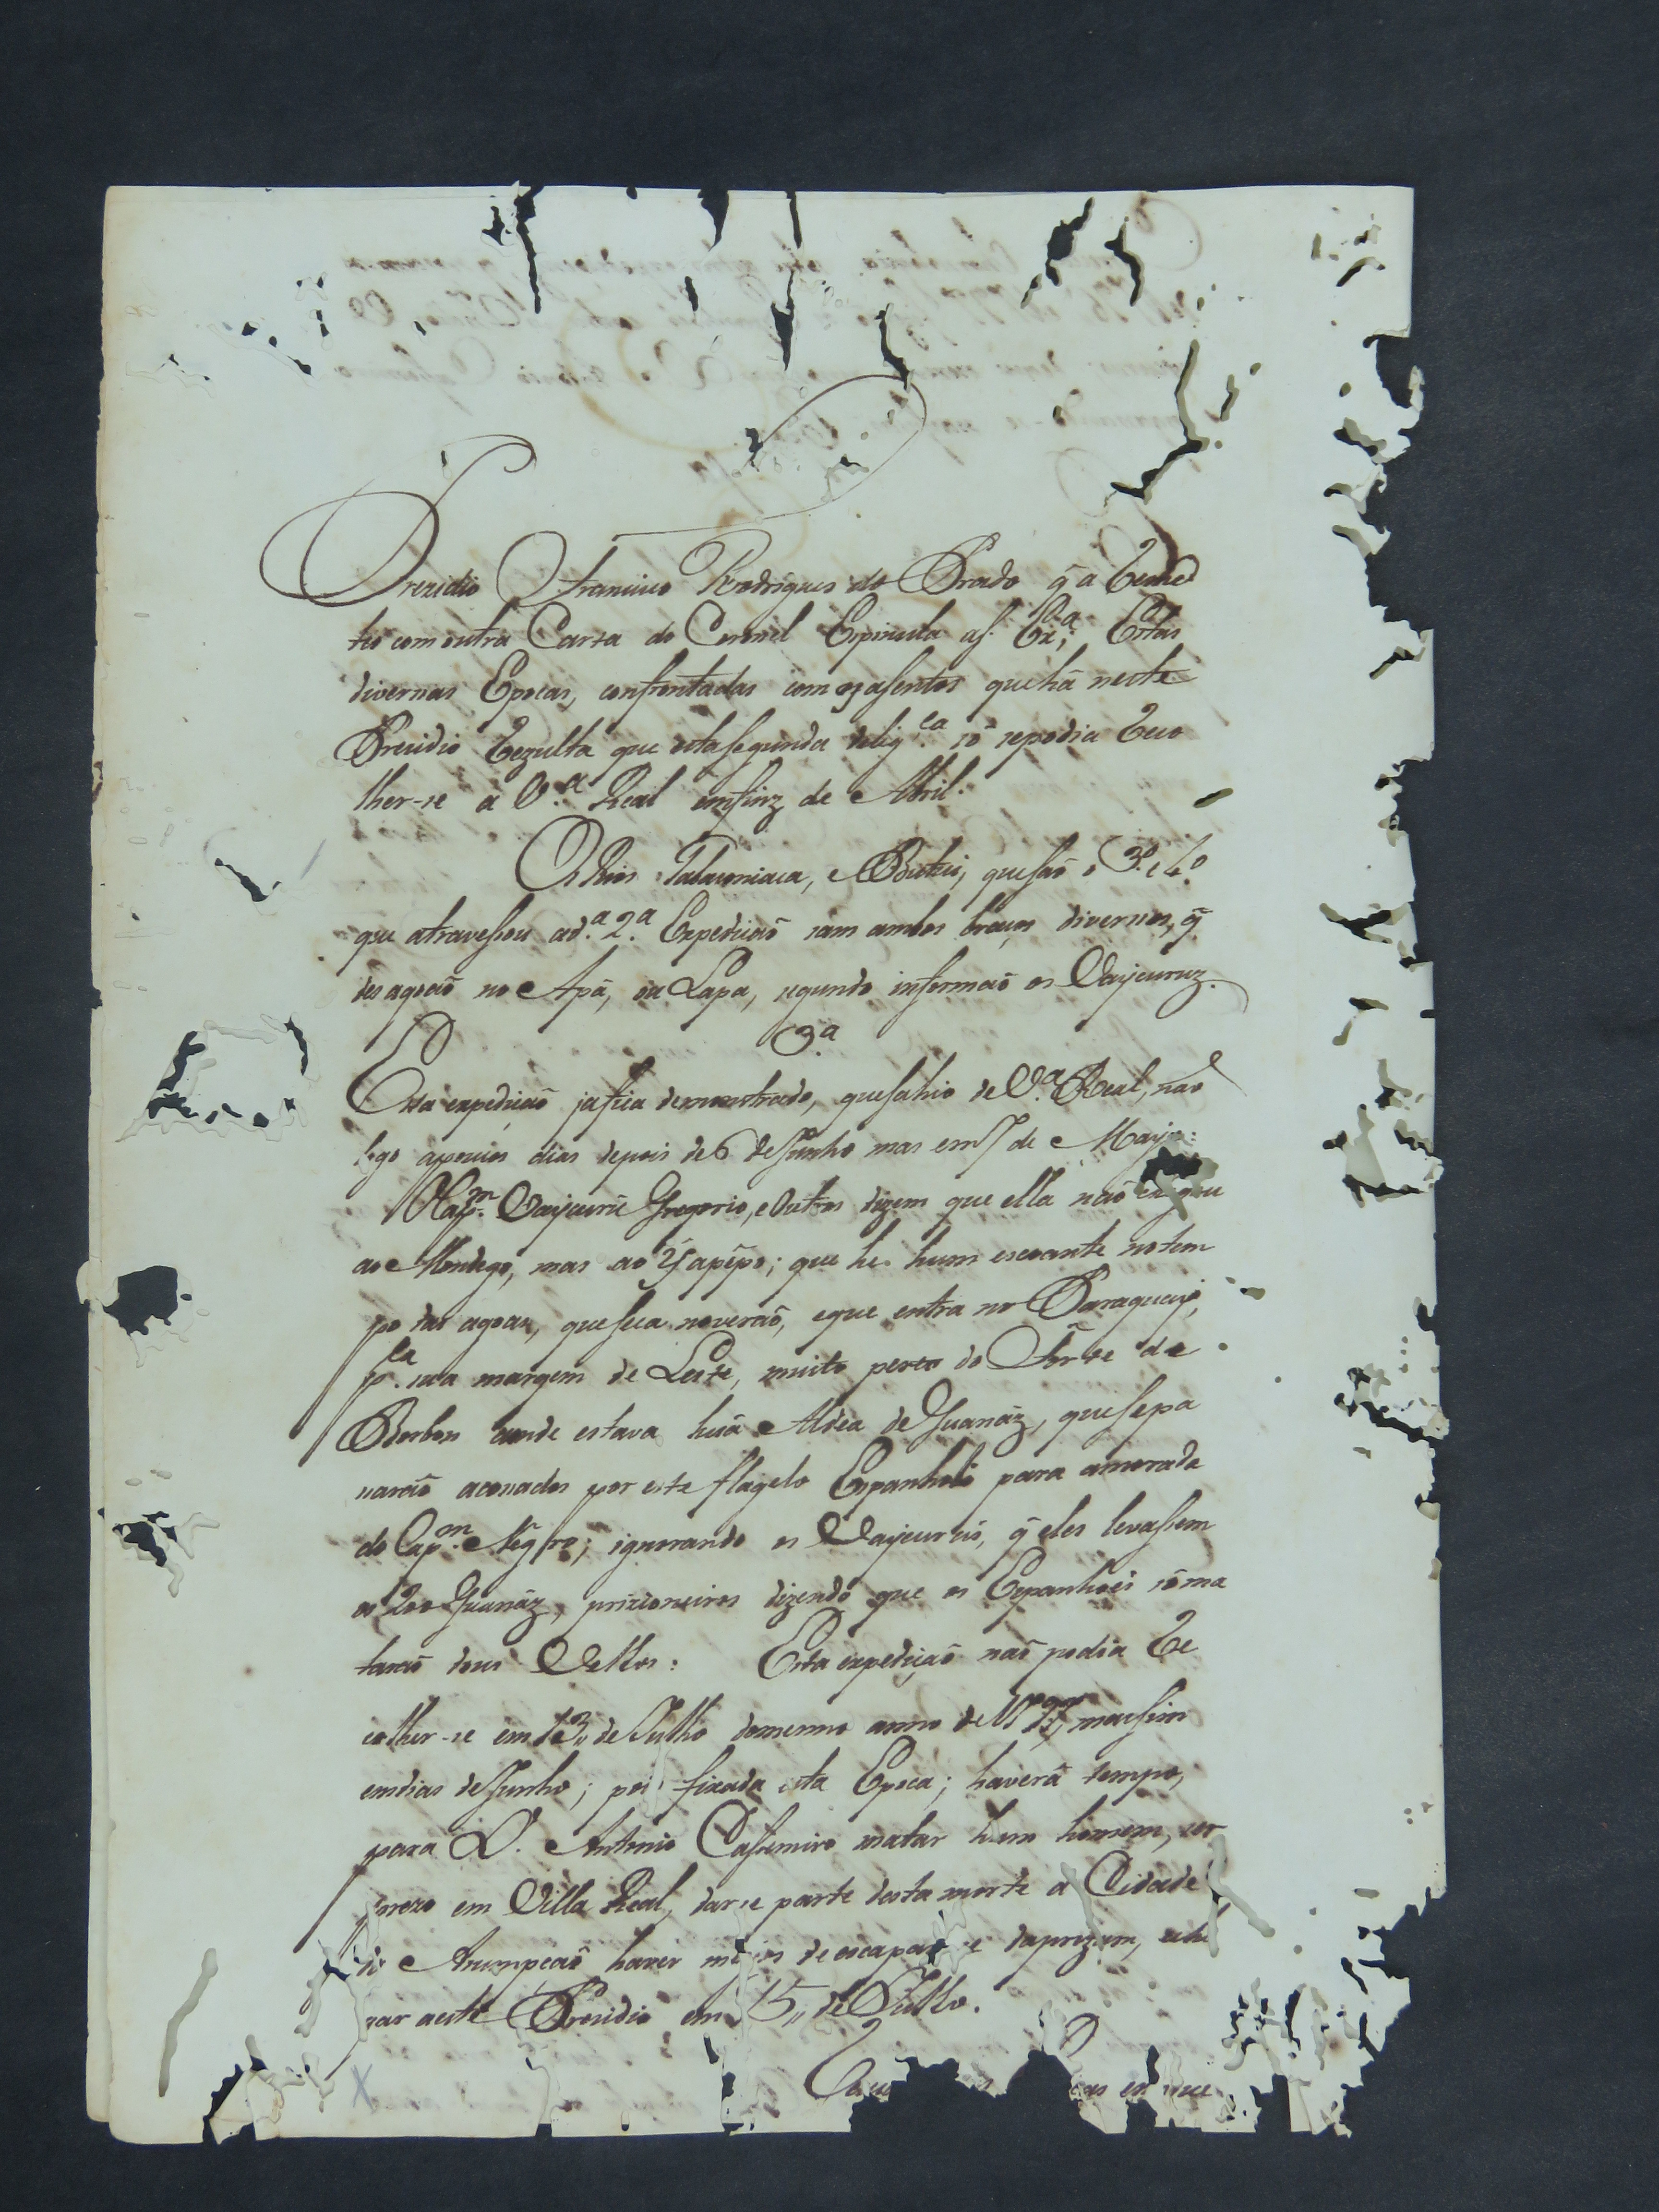 Prezidio Francisco Rodrigues do Prado q̃ a Reme
teo com outra Carta do Coronel Espinola a S. Ex.ª; Estas
diversas Epocas, confrontadas com os asentos que há neste
Prezidio Rezulta que esta segunda delig.ca só se podia Reco
lher-se a V.ª Real em finz de Abril.
Os Rios e Butui, que são o 3.º e 4.º
que atravessou a d.ª 2.ª Expedicaõ sam ambos braços diversos, q̃
desagoaõ no Apá, ou Lapa, segundo informaõ os Uaycuruz.
3.ª
Esta expediçaõ ja fica demonstrado, que sahio de V.ª Real, naõ
logo a poucos dias depois de 6 de Junho mas em 7 de Mayo:
O Cap.m Uaycurú Gregorio, e Outros dizem que ella naõ chegou
ao Mondego, mas ao ; que he hum escoante no tem
po das agoas, que seca no veraõ, e que entra no Paraguay,
p.la sua margem de Leste, muito perto do Forte de
Borbon aonde estava huã Aldea de Guanáz, que se pa
saraõ acosados por este flagelo Espanhol para a morada
do Cap.m Negro; ignorando os Uaycurús, q̃ eles levassem
os 200 Guanáz, prizioneiros dizendo que os Espanhoes só ma
taraõ dous Velhos: Esta expediçaõ naõ podia Re
colher-se em 13,, de Julho do mesmo anno de mas sim
em dias de Junho; pois fixada esta Epoca; haverá tempo,
para D. Antonio Cassemiro matar hum homem, ser
prezo em Villa Real, dar-se parte desta morte a Cidade
de Asumpçaõ haver meios de escapar-se da prizam, e che
gar a este Prezidio em 15,, de Julho.